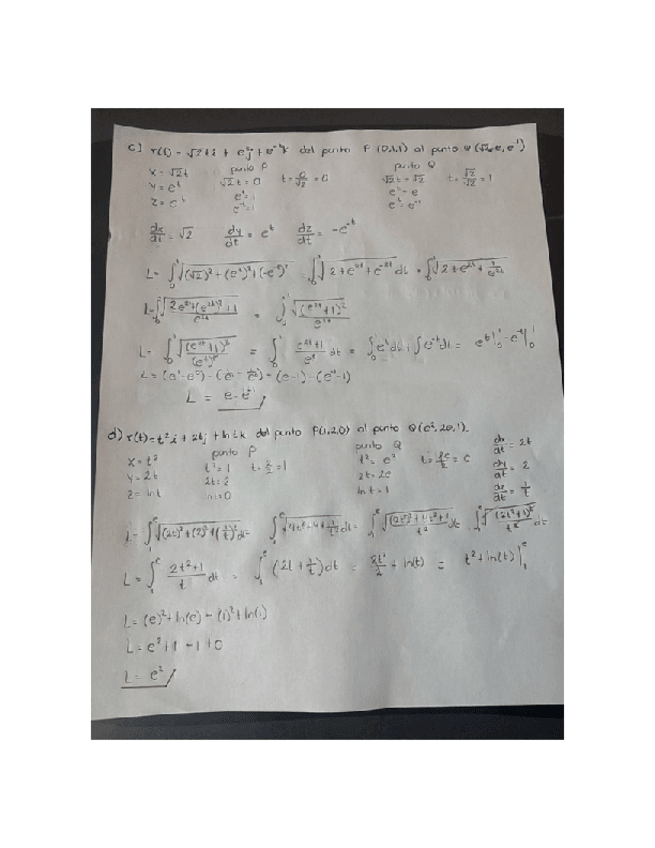 c) r(t) = √2 t i + e^t j + e^-t k del punto P (0,1,1) al punto Q (√2, e, e^-1)
x = √2t punto P punto Q
y = e^t √2 t = 0 t = 0/√2 = 0 √2t = √2 t = √2/√2 = 1
z = e^-t e^t = 1 e^t = e
e^-t = 1 e^-t = e^-1
dx/dt = √2 dy/dt = e^t dz/dt = -e^-t
L = ∫₀¹ √((√2)² + (e^t)² + (-e^-t)²) = ∫₀¹ √(2 + e^2t + e^-2t) dt = ∫₀¹ √(2 + e^2t + 1/e^2t)
L = ∫₀¹ √((2e^2t + (e^2t)² + 1)/e^2t) = ∫₀¹ √((e^2t + 1)²/e^2t)
L = ∫₀¹ √((e^2t + 1)²/(e^t)²) = ∫₀¹ (e^2t + 1)/e^t dt = ∫₀¹ e^t dt + ∫ e^-t dt = e^t|₀¹ - e^-t|₀¹
= (e-1) - (e^-1 - 1)
L = e - e^-1
d) r(t) = t² i + 2t j + ln t k del punto P(1,2,0) al punto Q(e², 2e, 1).
x = t² punto P punto Q dx/dt = 2t
y = 2t t² = 1 t = 2/2 = 1 t² = e² t = 2e/2 = e dy/dt = 2
z = ln t 2t = 2 2t = 2e dz/dt = 1/t
ln t = 0 ln t = 1
L = ∫₁^e √((2t)² + (2)² + (1/t)²) = ∫₁^e √(4t² + 4 + 1/t²) dt = ∫₁^e √(((2t²)² + 4t² + 1)/t²) dt = ∫₁^e √((2t² + 1)²/t²) dt
L = ∫₁^e (2t² + 1)/t dt = ∫₁^e (2t + 1/t) dt = 2t²/2 + ln(t) = t² + ln(t)|₁^e
L = (e)² + ln(e) - (1)² + ln(1)
L = e² + 1 - 1 + 0
L = e²